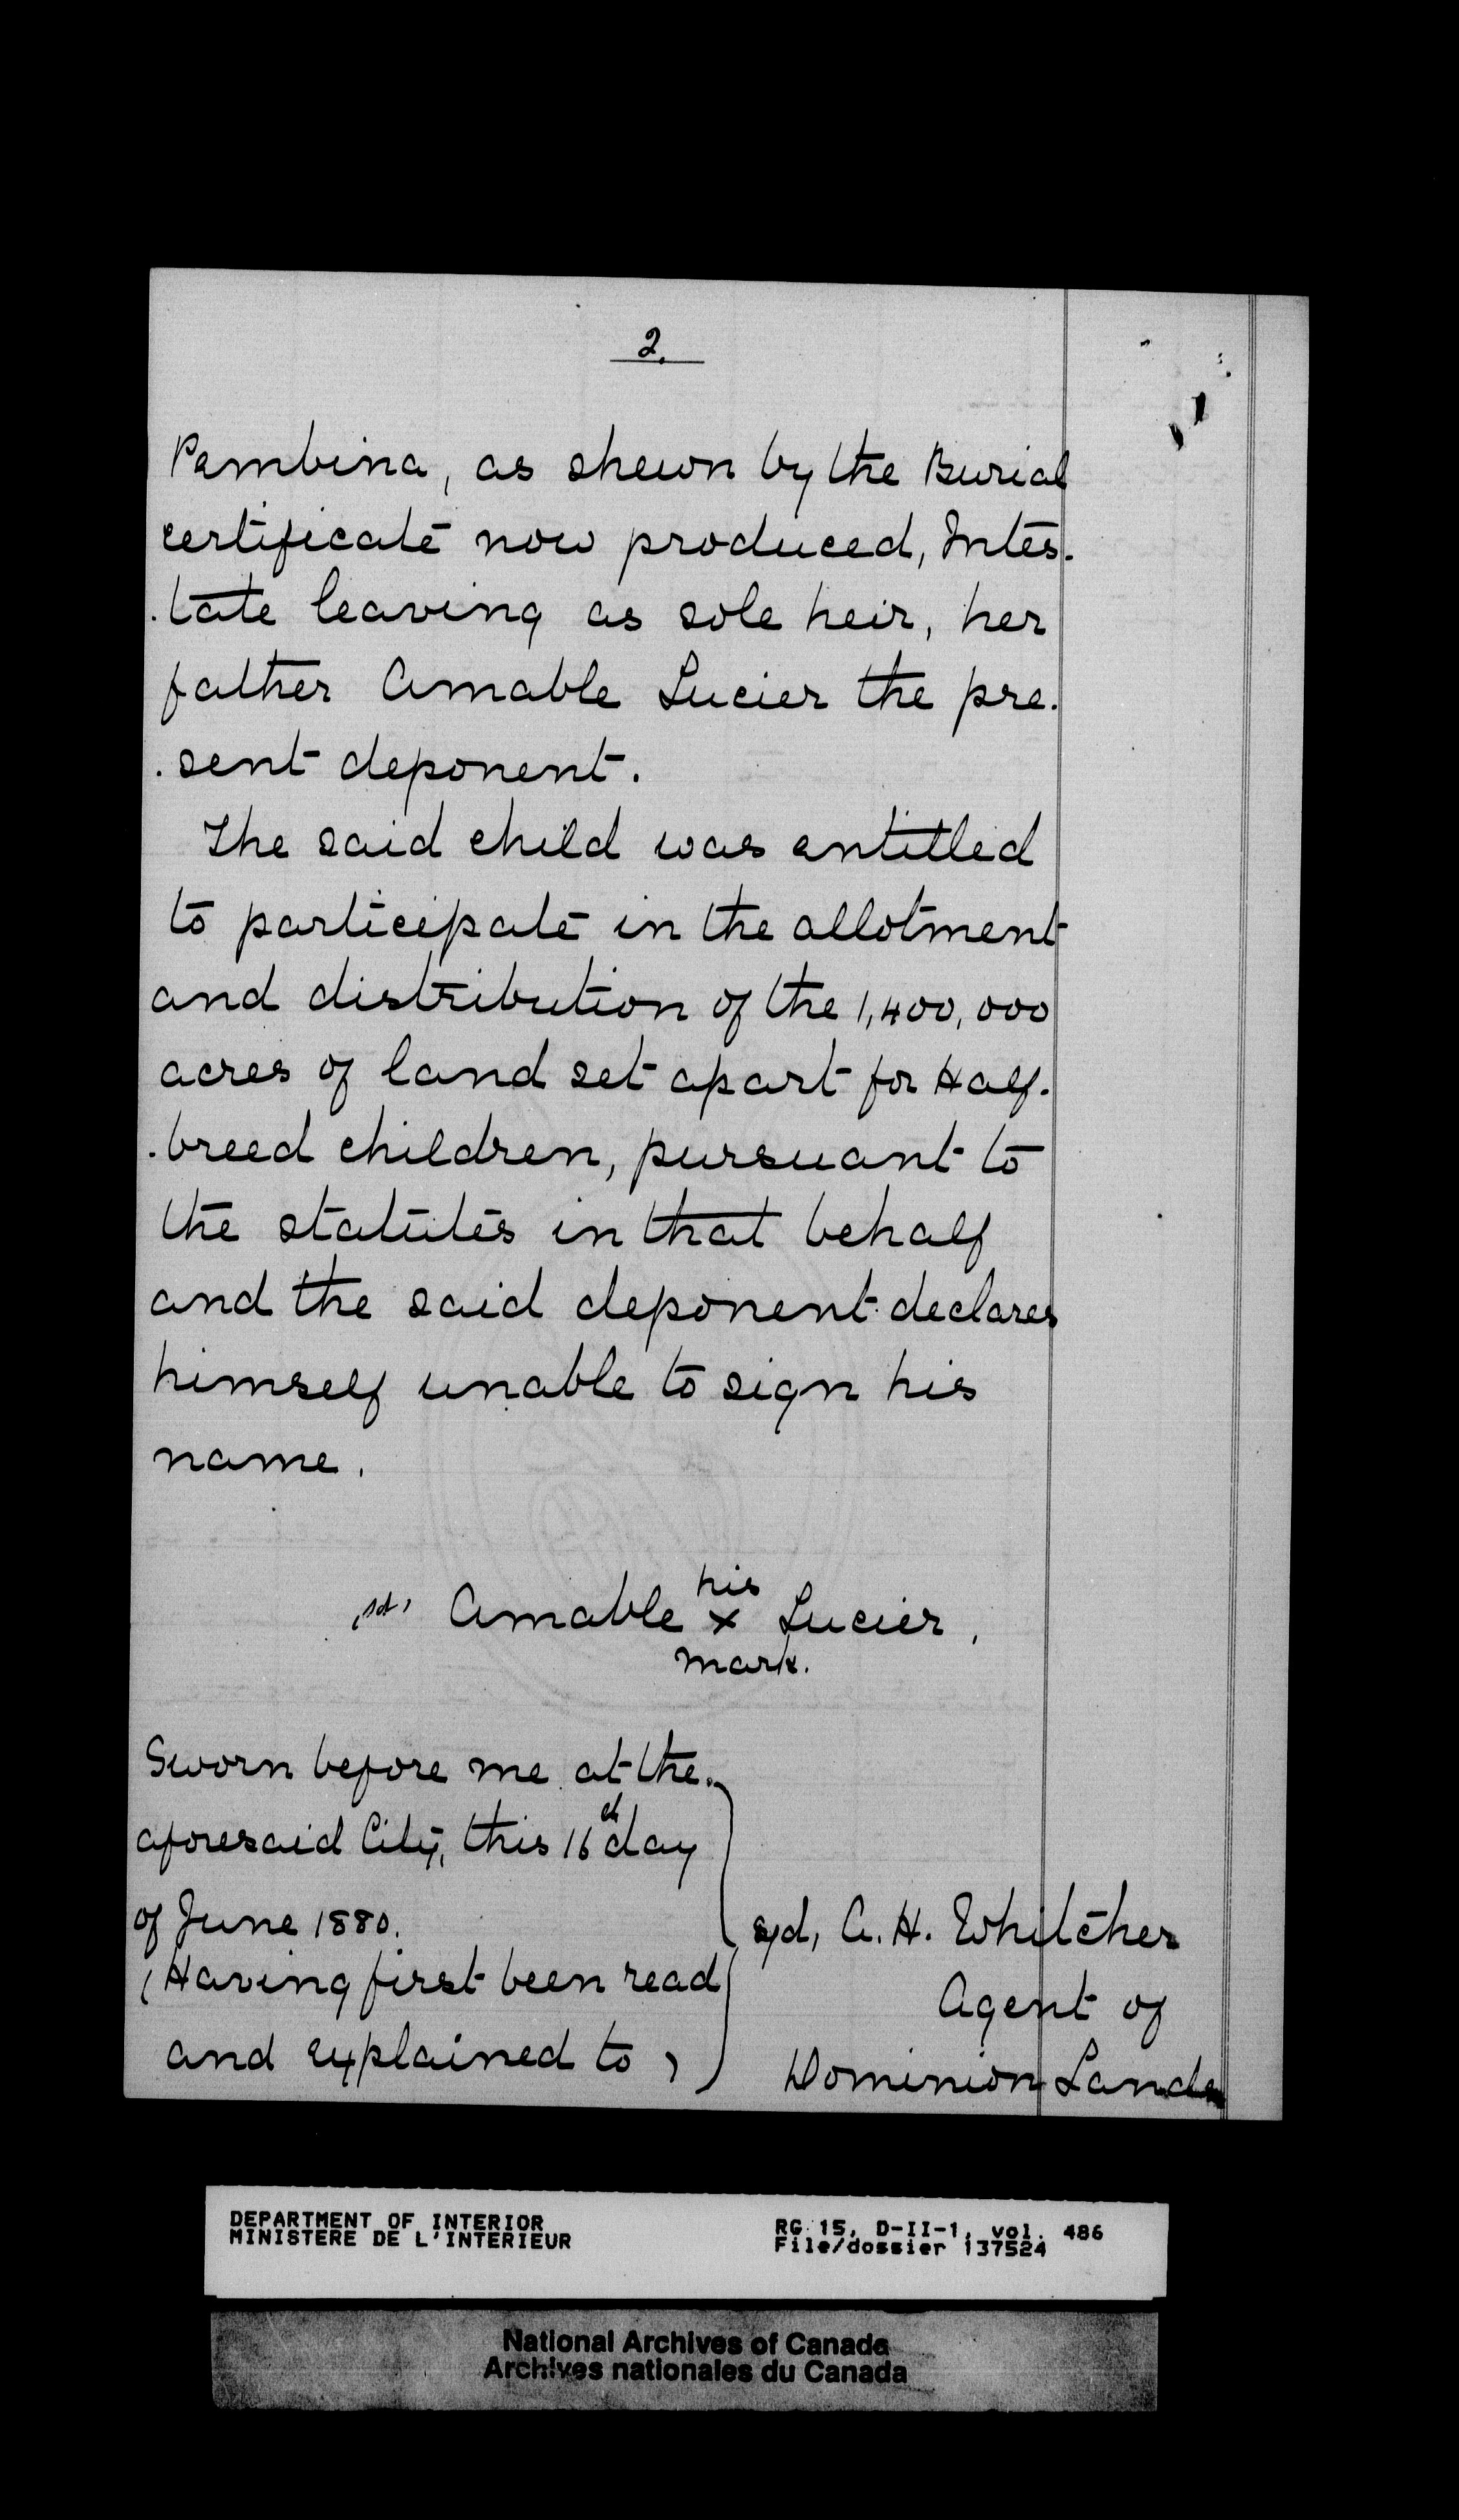 2.
Pembina, as shewn by the Burial
certificate now produced, Intes.
.tate leaving as sole heir, her
father Amable Lucier the pre.
.sent deponent.
The said child was entitled
to participate in the allotment
and distribution of the 1,400,000
acres of land set apart for Half.
.breed children, pursuant to
the statutes in that behalf
and the said deponent declares
himself unable to sign his
name.
his
sd, Amable x Lucier.
mark.
Sworn before me at the
aforesaid City, this 16th day
of June 1880.
(Having first been read
and explained to)
sgd, A. H. Whitcher
Agent of
Dominion Lands
DEPARTMENT OF INTERIOR
MINISTERE DE L'INTERIEUR
RG 15, D-II-1, vol. 486
File/dossier 137524
National Archives of Canada
Archives nationales du Canada